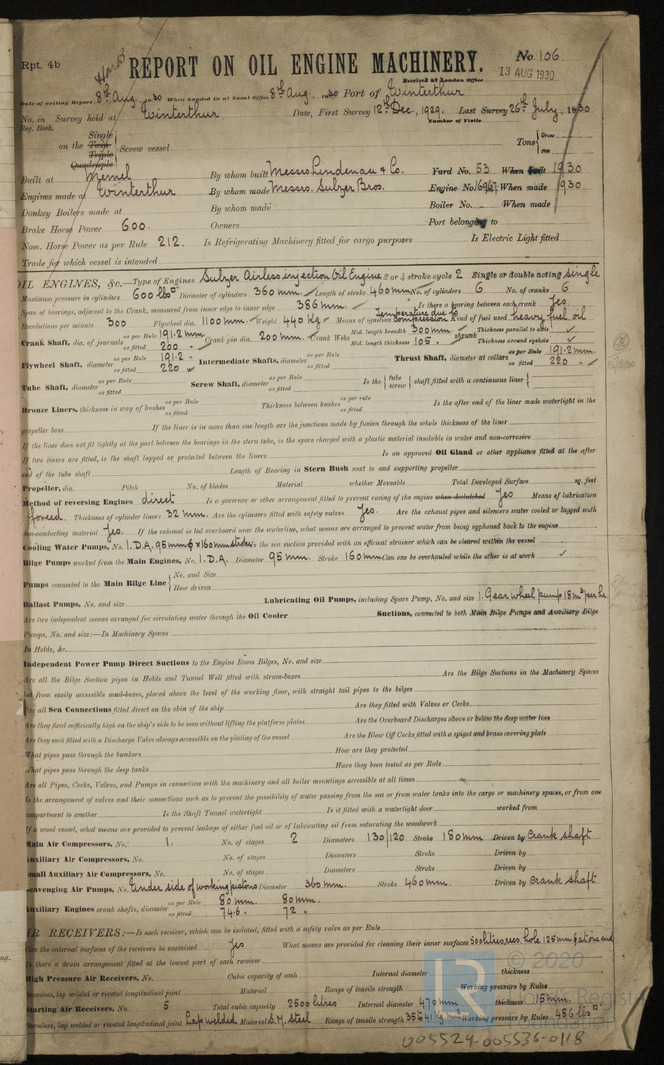 Rpt. 4b
REPORT ON OIL ENGINE MACHINERY.
No. 106.
Received at London Office
13 AUG 1930
Date of writing Report 8th Aug. 1930 When handed in at Local Office 8th Aug. 1930 Port of Winterthur
No. in Reg. Book. Survey held at Winterthur Date, First Survey 12th Dec., 1929. Last Survey 26th July, 1930
Number of Visits
on the Single Twin Triple Quadruple Screw vessel Tons
Built at Memel By whom built Messrs. Lindenau & Co. Yard No. 53 When built 1930
Engines made at Winterthur By whom made Messrs. Sulzer Bros. Engine No. When made 1930
Donkey Boilers made at By whom made Boiler No. When made
Brake Horse Power 600. Owners Port belonging to
Nom. Horse Power as per Rule 212. Is Refrigerating Machinery fitted for cargo purposes Is Electric Light fitted
Trade for which vessel is intended
OIL ENGINES, &c.—Type of Engines Sulzer Airless injection Oil Engine 2 or 4 stroke cycle 2 Single or double acting single
Maximum pressure in cylinders 600 lbs Diameter of cylinders 360 mm. Length of stroke 460 mm No. of cylinders 6 No. of cranks 6
Span of bearings, adjacent to the Crank, measured from inner edge to inner edge 386 mm. Is there a bearing between each crank Yes.
Revolutions per minute 300 Flywheel dia. 1100 mm. Weight 440 Kg. Means of ignition temperature due to compression Kind of fuel used heavy fuel oil
Crank Shaft, dia. of journals as per Rule 191.2 mm. as fitted 200 Crank pin dia. 200 mm. Crank Webs Mid. length breadth 300 mm Mid. length thickness 105 shrunk Thickness parallel to axis Thickness around eyehole
Flywheel Shaft, diameter as per Rule 191.2 as fitted 220 Intermediate Shafts, diameter as per Rule as fitted Thrust Shaft, diameter at collars as per Rule 191.2 mm as fitted 220
Tube Shaft, diameter as per Rule as fitted Screw Shaft, diameter as per Rule as fitted Is the tube screw shaft fitted with a continuous liner
Bronze Liners, thickness in way of bushes as per Rule as fitted Thickness between bushes as per rule as fitted Is the after end of the liner made watertight in the
propeller boss If the liner is in more than one length are the junctions made by fusion through the whole thickness of the liner
If the liner does not fit tightly at the part between the bearings in the stern tube, is the space charged with a plastic material insoluble in water and non-corrosive
If two liners are fitted, is the shaft lapped or protected between the liners Is an approved Oil Gland or other appliance fitted at the after
end of the tube shaft Length of Bearing in Stern Bush next to and supporting propeller
Propeller, dia. Pitch No. of blades Material whether Moveable Total Developed Surface sq. feet
Method of reversing Engines direct Is a governor or other arrangement fitted to prevent racing of the engine when declutched Yes Means of lubrication
forced. Thickness of cylinder liners 32 mm. Are the cylinders fitted with safety valves Yes. Are the exhaust pipes and silencers water cooled or lagged with
non-conducting material Yes. If the exhaust is led overboard near the waterline, what means are arranged to prevent water from being syphoned back to the engine
Cooling Water Pumps, No. 1. D.A. 95 mm φ x 160 mm stroke Is the sea suction provided with an efficient strainer which can be cleared within the vessel
Bilge Pumps worked from the Main Engines, No. 1. D.A. Diameter 95 mm. Stroke 160 mm Can one be overhauled while the other is at work
Pumps connected to the Main Bilge Line No. and Size How driven
Ballast Pumps, No. and size Lubricating Oil Pumps, including Spare Pump, No. and size 1. Gear wheel pump 18 m³ per hr.
Are two independent means arranged for circulating water through the Oil Cooler Suctions, connected to both Main Bilge Pumps and Auxiliary Bilge
Pumps, No. and size:—In Machinery Spaces
In Holds, &c.
Independent Power Pump Direct Suctions to the Engine Room Bilges, No. and size
Are all the Bilge Suction pipes in Holds and Tunnel Well fitted with strum-boxes Are the Bilge Suctions in the Machinery Spaces
led from easily accessible mud-boxes, placed above the level of the working floor, with straight tail pipes to the bilges
Are all Sea Connections fitted direct on the skin of the ship Are they fitted with Valves or Cocks
Are they fixed sufficiently high on the ship's side to be seen without lifting the platform plates Are the Overboard Discharges above or below the deep water line
Are they each fitted with a Discharge Valve always accessible on the plating of the vessel Are the Blow Off Cocks fitted with a spigot and brass covering plate
What pipes pass through the bunkers How are they protected
What pipes pass through the deep tanks Have they been tested as per Rule
Are all Pipes, Cocks, Valves, and Pumps in connection with the machinery and all boiler mountings accessible at all times
Is the arrangement of valves and their connections such as to prevent the possibility of water passing from the sea or from water tanks into the cargo or machinery spaces, or from one
compartment to another Is the Shaft Tunnel watertight Is it fitted with a watertight door worked from
If a wood vessel, what means are provided to prevent leakage of either fuel oil or of lubricating oil from saturating the woodwork
Main Air Compressors, No. 1. No. of stages 2 Diameters 130/120 Stroke 180 mm Driven by Crank shaft
Auxiliary Air Compressors, No. No. of stages Diameters Stroke Driven by
Small Auxiliary Air Compressors, No. No. of stages Diameters Stroke Driven by
Scavenging Air Pumps, No. Under side of working pistons Diameter 360 mm. Stroke 460 mm. Driven by Crank shaft
Auxiliary Engines crank shafts, diameter as per Rule 80 mm. 80 mm. as fitted 74.6 72
AIR RECEIVERS:—Is each receiver, which can be isolated, fitted with a safety valve as per Rule
Can the internal surfaces of the receivers be examined Yes What means are provided for cleaning their inner surfaces
Is there a drain arrangement fitted at the lowest part of each receiver
High Pressure Air Receivers, No. Cubic capacity of each Internal diameter thickness
Seamless, lap welded or riveted longitudinal joint Material Range of tensile strength Working pressure by Rules
Starting Air Receivers, No. 5 Total cubic capacity 2500 litres Internal diameter 470 mm thickness 15 mm.
Seamless, lap welded or riveted longitudinal joint Lap welded Material S.M. Steel Range of tensile strength Working pressure by Rules 486 lbs
LR
© 2020
005529-005536-0118